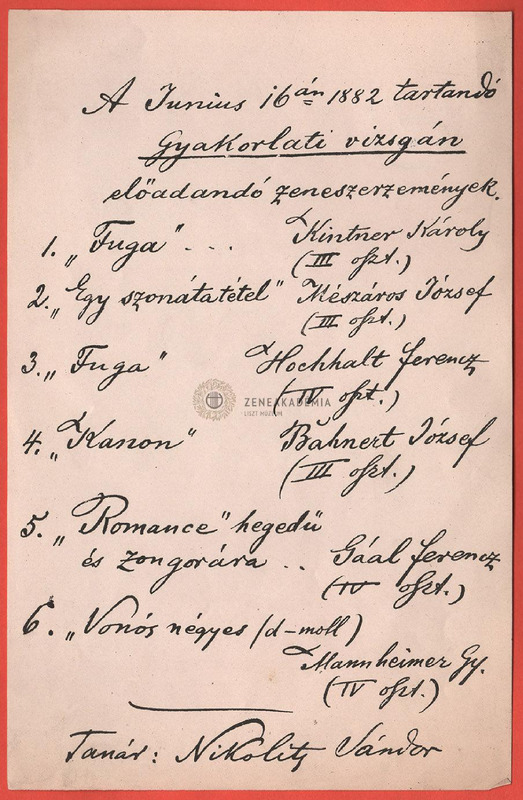 A Junius 16án 1882 tartandó
Gyakorlati vizsgán
előadandó zeneszerzemények.
1. „Fuga" . . . Kintner Károly
(III oszt.)
2. „Egy szonátatétel" Mészáros József
(III oszt.)
3. „Fuga" Hochhalt Ferencz
(IV oszt.)
ZENEAKADÉMIA
LISZT MÚZEUM
4. „Kanon" Bahnert József
(III oszt.)
5. „Romance" hegedü
és zongorára . . Gáal Ferencz
(IV oszt.)
6. „Vonós négyes (d-moll)
Mannheimer Gy.
(IV oszt.)
Tanár: Nikolits Sándor